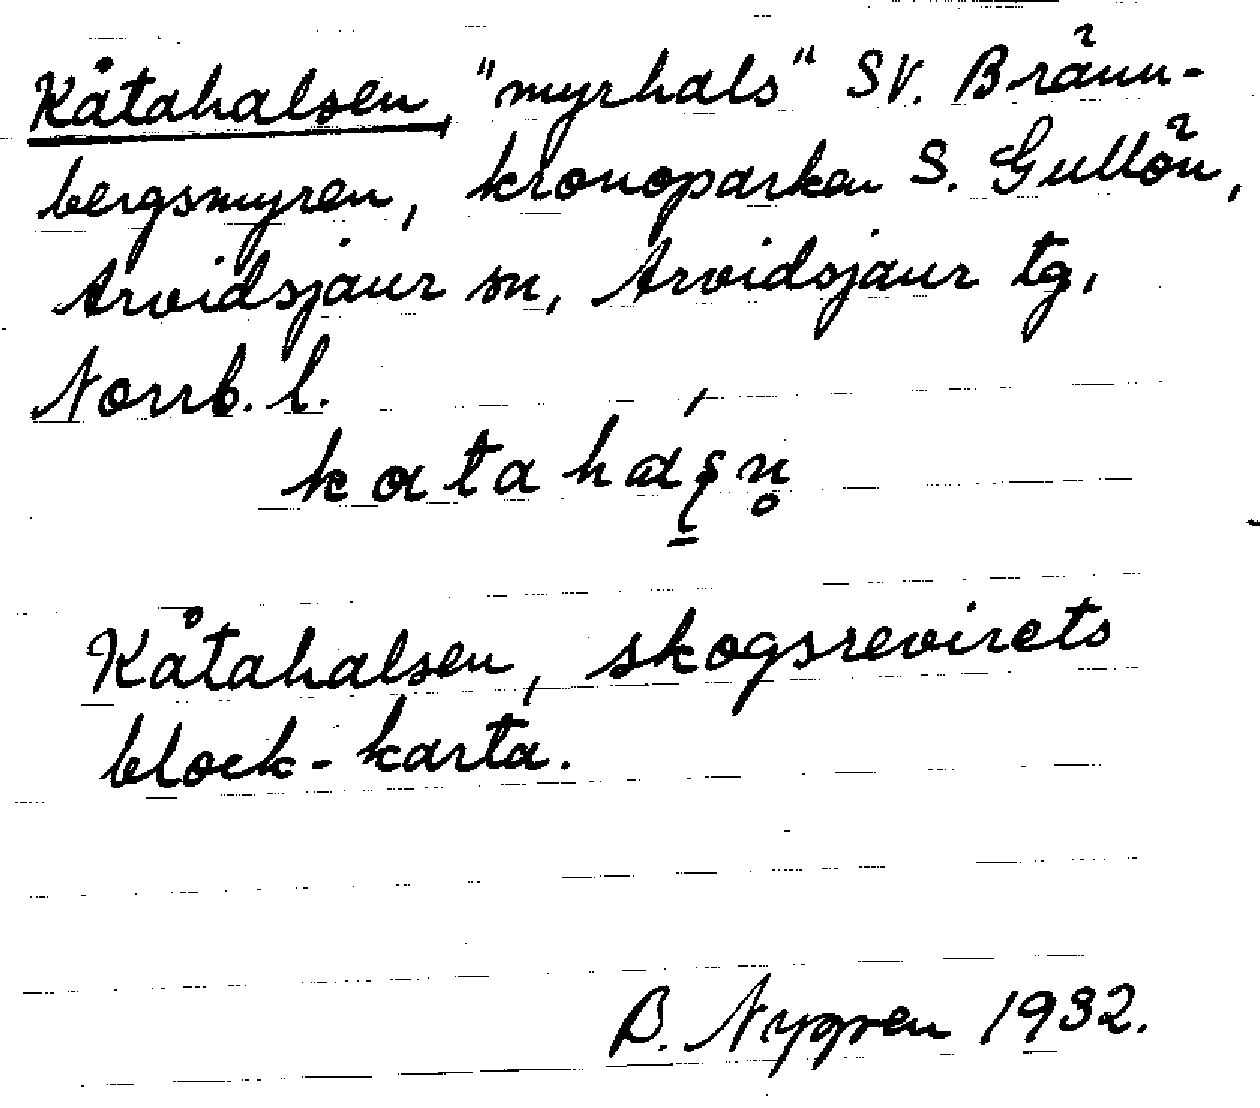 Kåtahalsen, "myrhals" SV. Bränn-
bergsmyren, kronoparken S. Gullön,
Arvidsjaur sn, Arvidsjaur tg,
Norrb. l.
Kåtahalsen, skogsrevirets
block-karta.
B. Nygren 1932.